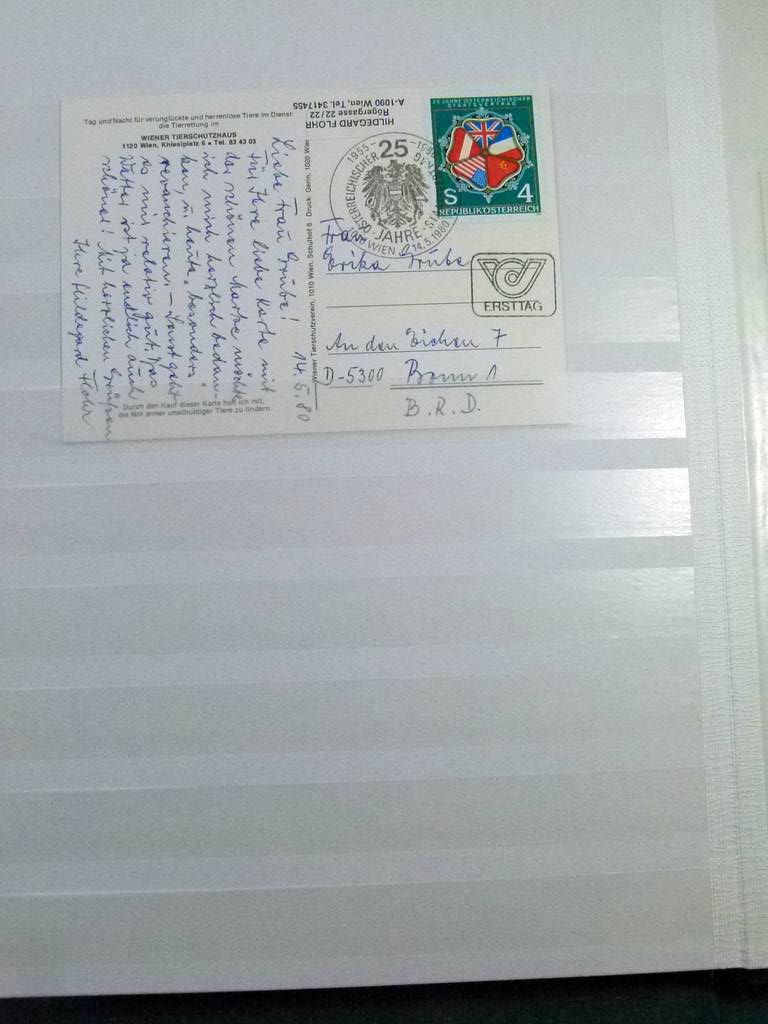 Tag und Nacht für verunglückte und herrenlose Tiere im Dienst:
die Tierrettung im
WIENER TIERSCHUTZHAUS
1120 Wien, Khleslplatz 6 • Tel. 83 43 03
14.5.80
Liebe Frau Grube!
Für Ihre liebe Karte mit
der schönen Marke möchte
ich mich herzlich bedan-
ken, u. heute
revanchieren. – Sonst geht
es mir relativ gut. Das
Wetter ist ja endlich auch
schöner! Mit herzlichen Grüßen
Ihre Hildegard Flohr
Durch den Kauf dieser Karte half ich mit,
die Not armer unschuldiger Tiere zu lindern
Wiener Tierschutzverein, 1010 Wien, Schulhof 6 · Druck: Gerin, 1020 Wien
HILDEGARD FLOHR
Rögergasse 22/22
A-1090 Wien, Tel. 3417455
1955–1980
25
ÖSTERREICHISCHER
JAHRE
WIEN 14.5.1980
25 JAHRE ÖSTERREICHISCHER
STAATSVERTRAG
S 4
REPUBLIK ÖSTERREICH
ERSTTAG
Frau
Erika Grube
An den Eichen 7
D-5300 Bonn 1
B.R.D.